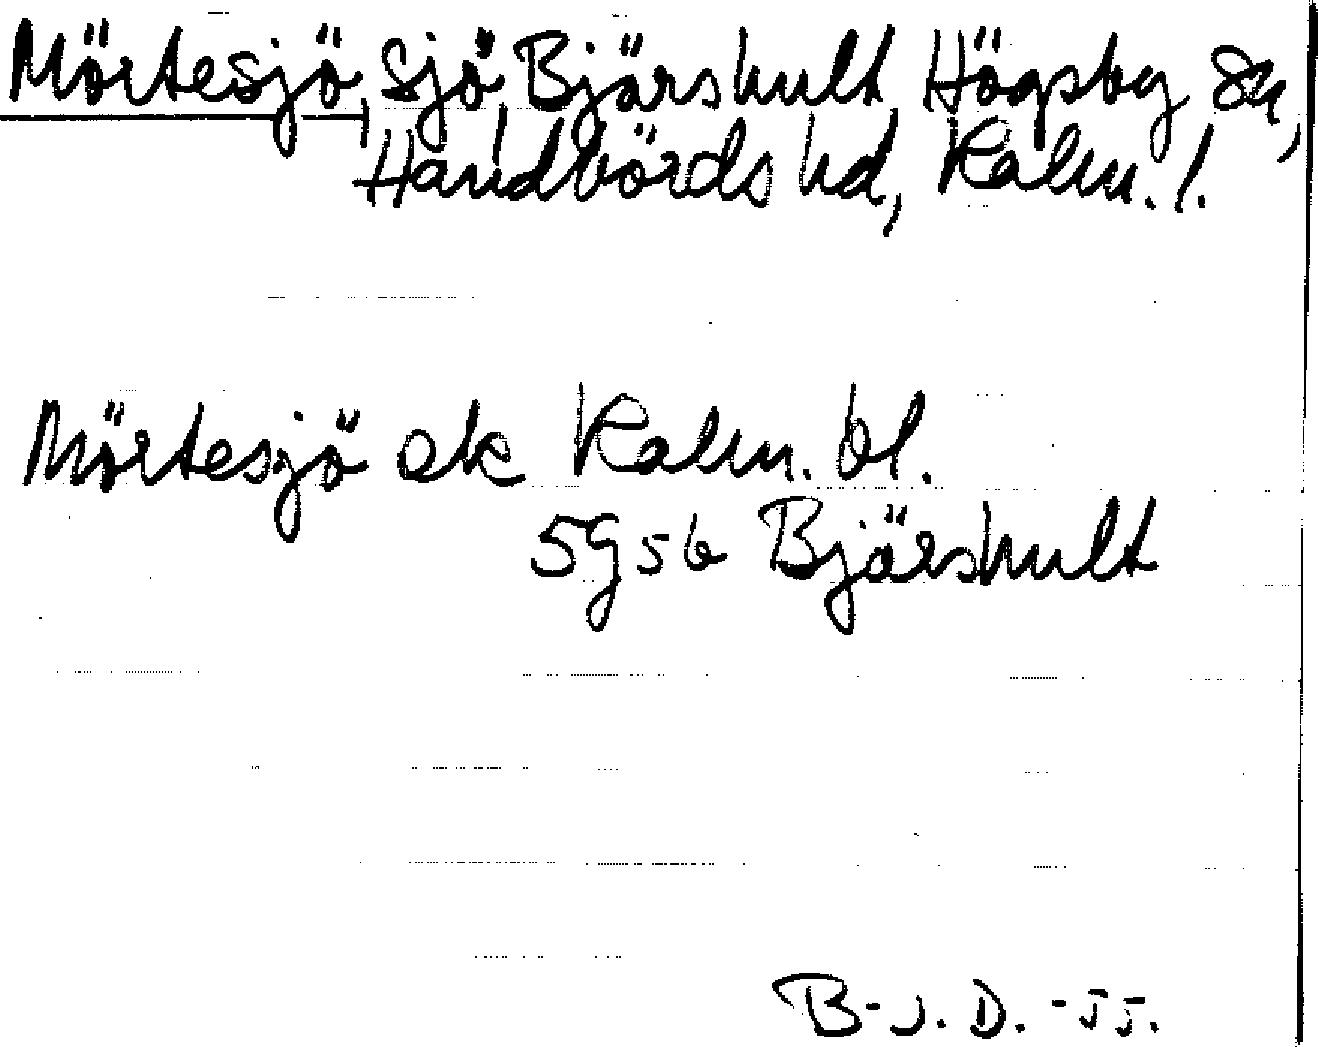 Mörtesjö, sjö, Bjärshult, Högsby sn,
Handbörds hd, Kalm. l.
Mörtesjö ek Kalm. bl.
5G5b Bjärshult
B-J. D. -55.